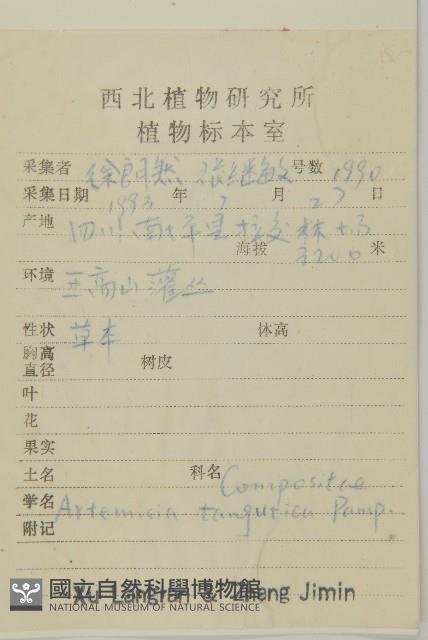 西北植物研究所
植物标本室
采集者 徐朗然 张继敏 号数 1990
采集日期 1993 年 7 月 27 日
产地 四川 南坪
林场
海拔 3200 米
环境 亚高山灌丛
性状 草本 体高
胸高
直径 树皮
叶
花
果实
土名 科名 Compositae
学名 Artemisia tangutica Pamp.
附记
Xu Langran & Zhang Jimin
國立自然科學博物館
NATIONAL MUSEUM OF NATURAL SCIENCE